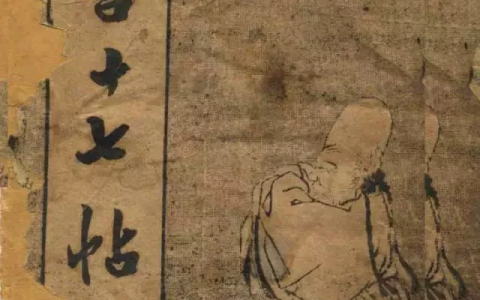 十七帖